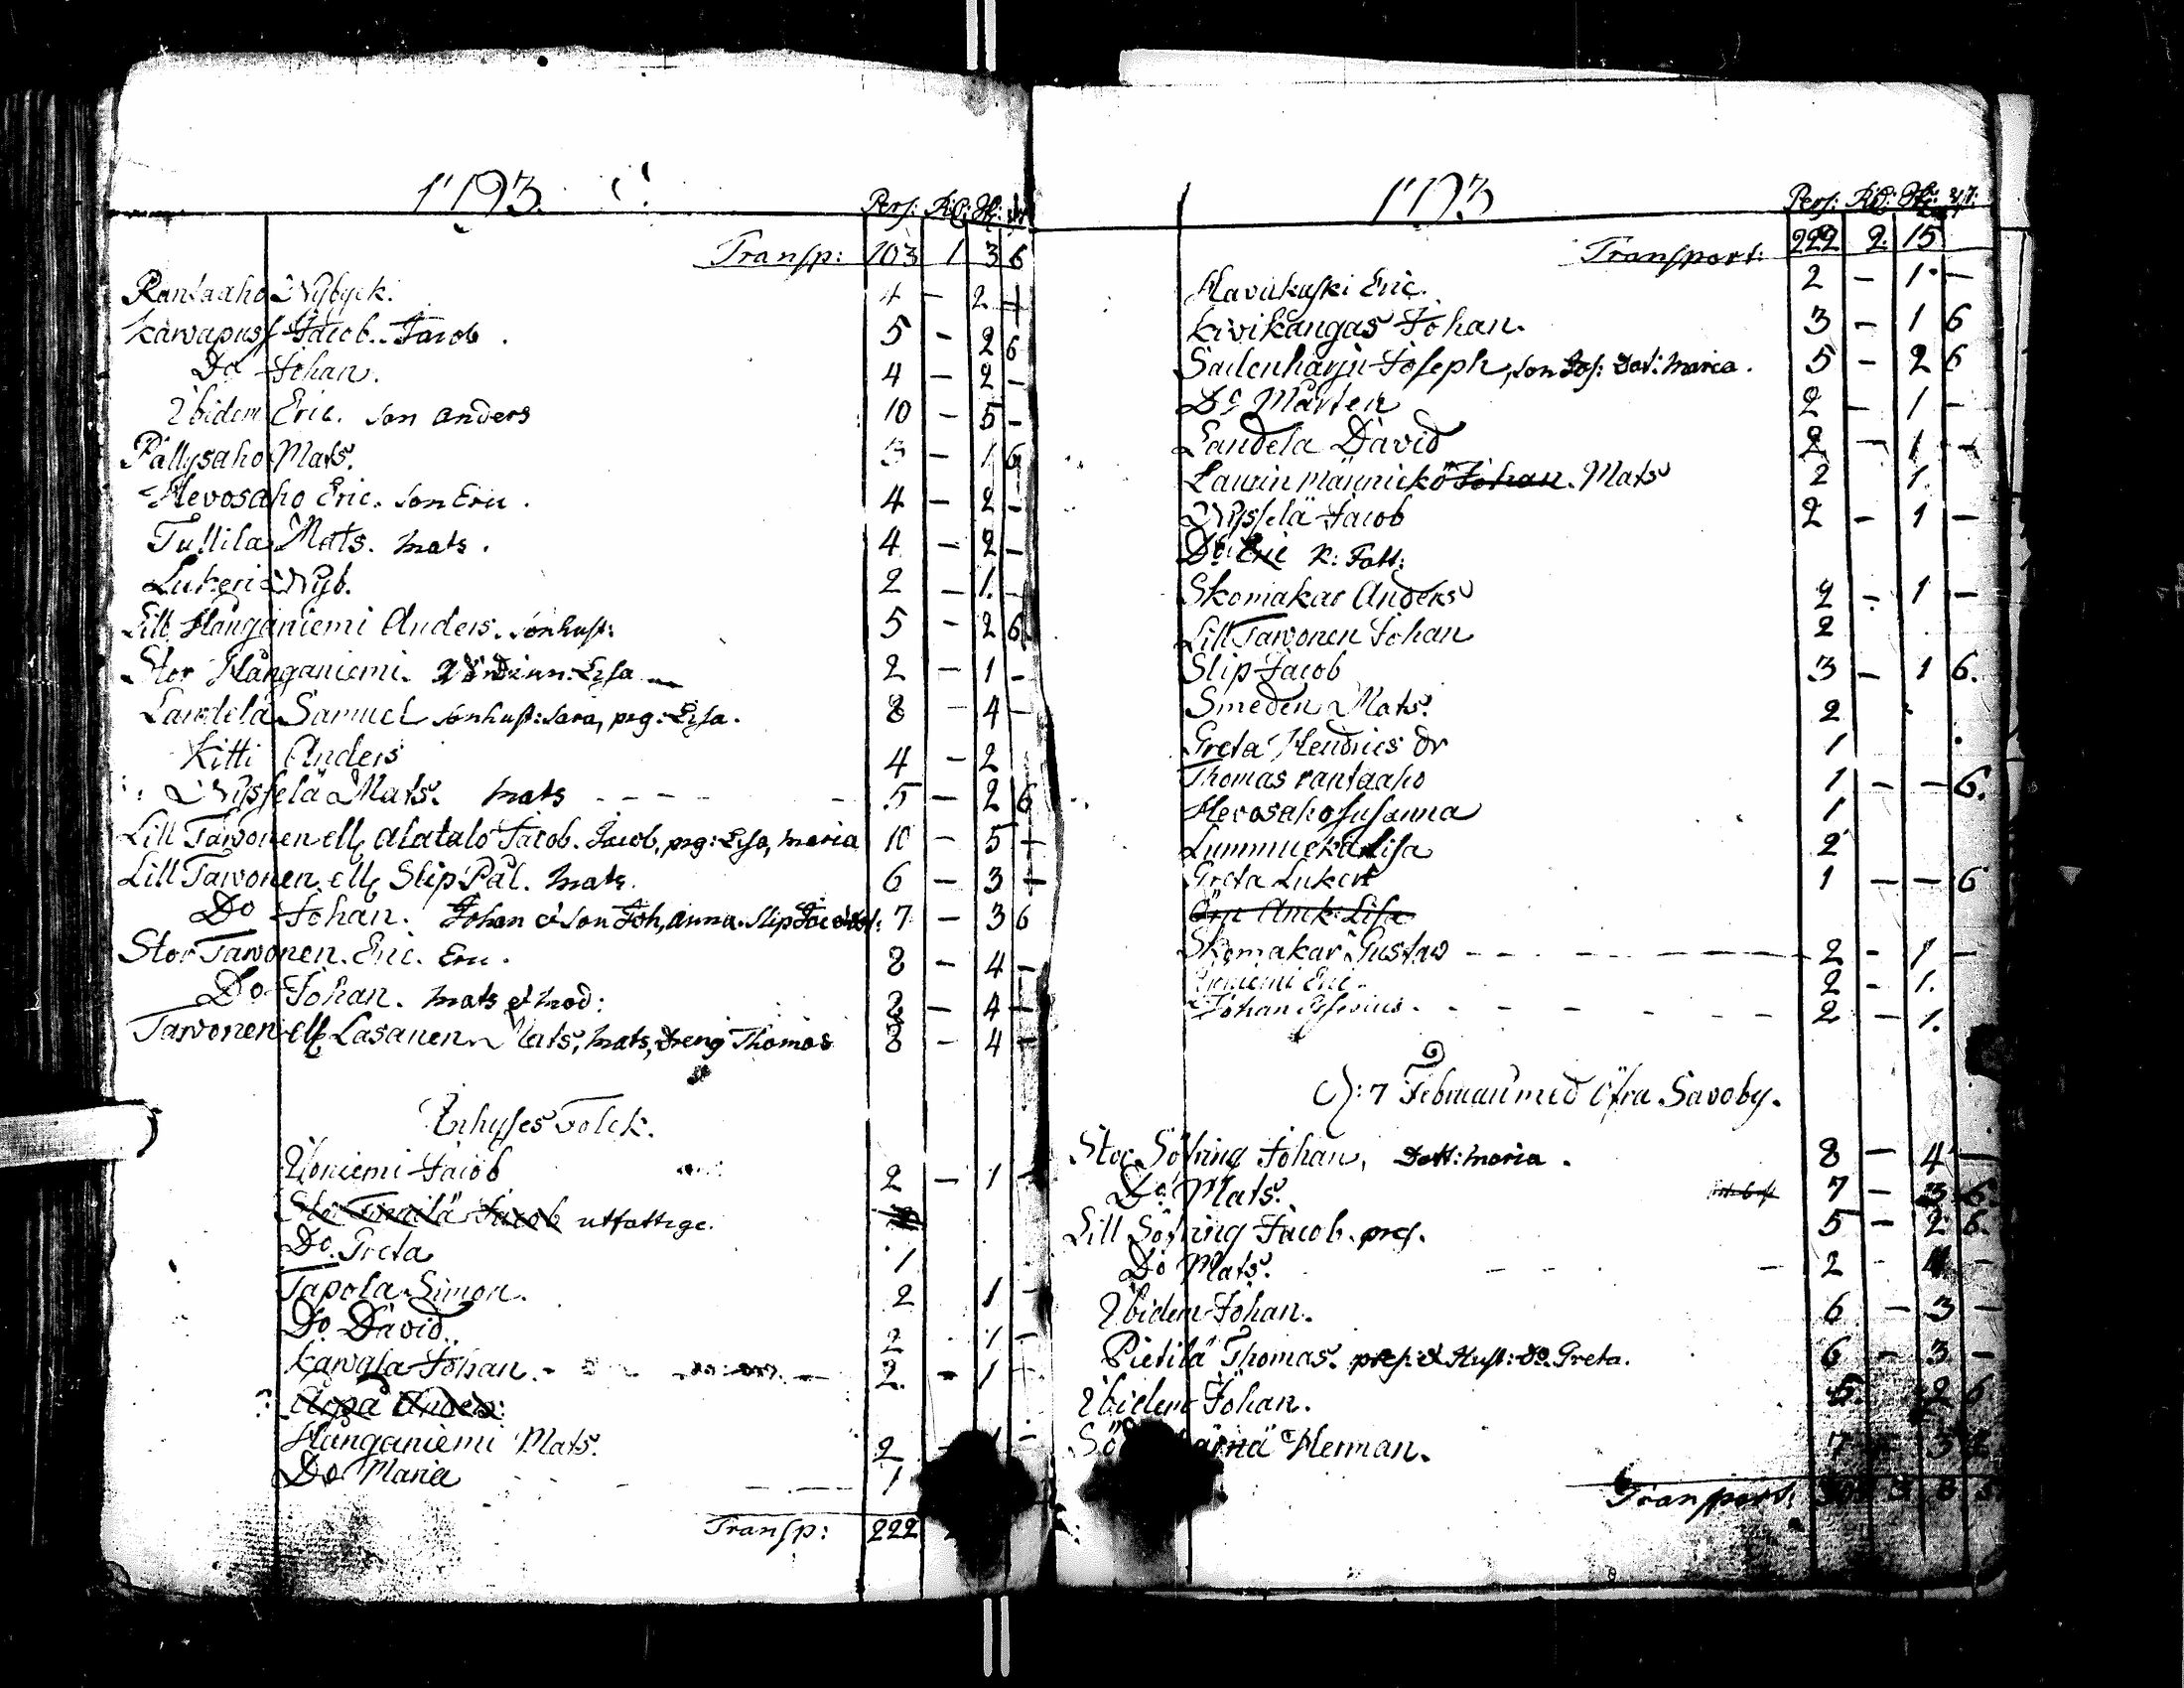 1793.
Pers: Rd: ſk: rst
Transp: 103 1 3 6
Rantaaho Nybyck. 4 - 2 -
Karvapuss Jacob. Jacob. 5 - 2 6
Do Johan. 4 - 2 -
Ibidem Eric. son anders 10 - 5 -
Pällysaho Mats. 3 - 1 6
Hevosaho Eric. son Eric. 4 - 2 -
Tullila Mats. mats. 4 - 2 -
Lukeri Nyb. 2 - 1. -
Lill Hanganiemi Anders. sonhust: 5 - 2 6
Stor Hanganiemi. Lisa 2 - 1 -
Landela Samuel sonhust: Sara, pig: Lisa. 8 - 4 -
Kitti Anders 4 - 2
Nysselä Mats. mats 5 - 2 6
Lill Tarvonen ell alatalo Jacob. Jacob, pig: Lisa, maria 10 - 5 -
Lill Tarvonen ell Slip Pål. mats. 6 - 3 -
Do Johan. Johan & son Joh, anna. Slip 7 - 3 6
Stor Tarvonen. Eric. Eric. 8 - 4 -
Do Johan. mats et mod: 8 - 4 -
Tarvonen ell Lasanen Mats, mats, dreng Thomas 8 - 4 -
Inhyses Folck.
Isoniemi Jacob 2 - 1 -
Jacob utfattige.
Do. Greta 1
Tapola Simon. 2 1 -
Do David. 2 1 -
Karvala Johan. 2. - 1 -
Anders:
Hanganiemi Mats. 2
Do Maria 1
Transp: 222
1793
Pers: Rd: ſk: rst:
Transport: 222 2. 15
Havukoski Eric. 2 - 1 -
Kivikangas Johan. 3 - 1 6
Sadenharju Joseph, son Jos: Dot: maria. 5 - 2 6
Do Mårten 2 - 1 -
Landela David 2 - 1 -
Laurin männickö Johan. Mats 2 1.
Nysselä Jacob 2 - 1 -
Do Eric K: Fatt:
Skomakar Anders 2 - 1 -
Lill Tarvonen Johan 2
Slip Jacob 3 - 1 6.
Smeden Mats. 2
Greta Hendrics dr 1
Thomas rantaaho 1 - - 6.
Hevosaho susanna 1
Lummucka Lisa 2
Greta Lukeri 1 - - 6
Lisa
Skomakar Gustav 2 - 1 -
Eric. 2 - 1.
Johan 2 - 1.
D: 7 Februari med Öfra Savoby.
Stor Söyring Johan, Dott: maria. 8 - 4 -
Do Mats. 7 - 3 6.
Lill Söyring Jacob. 5 - 2 6.
Do Mats. 2 - 1 -
Ibidem Johan. 6 - 3 -
Pietilä Thomas. & Hust: Do. Greta. 6 - 3 -
Ibidem Johan. 5. 2 6
Herman. 7 3
Transport: